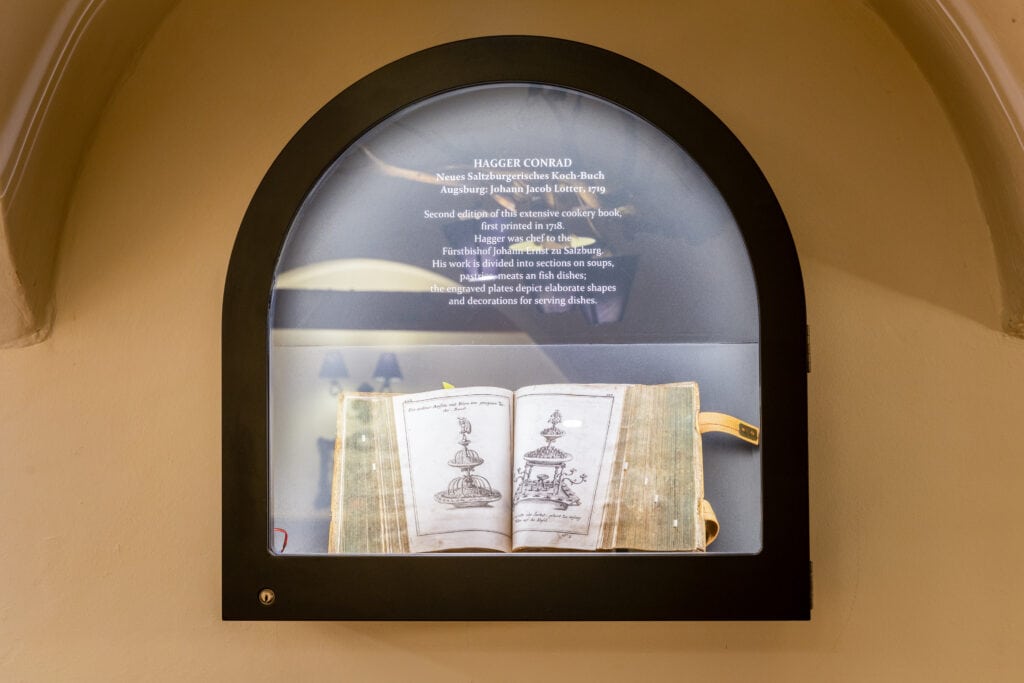 HAGGER CONRAD
Neues Saltzburgerisches Koch-Buch
Augsburg: Johann Jacob Lotter, 1719
Second edition of this extensive cookery book,
first printed in 1718.
Hagger was chef to the
Fürstbishof Johann Ernst zu Salzburg.
His work is divided into sections on soups,
pastries, meats an fish dishes;
the engraved plates depict elaborate shapes
and decorations for serving dishes.